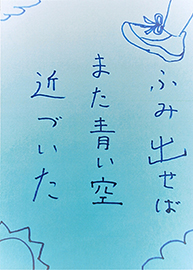 ふみ出せば
また青い空
近づいた